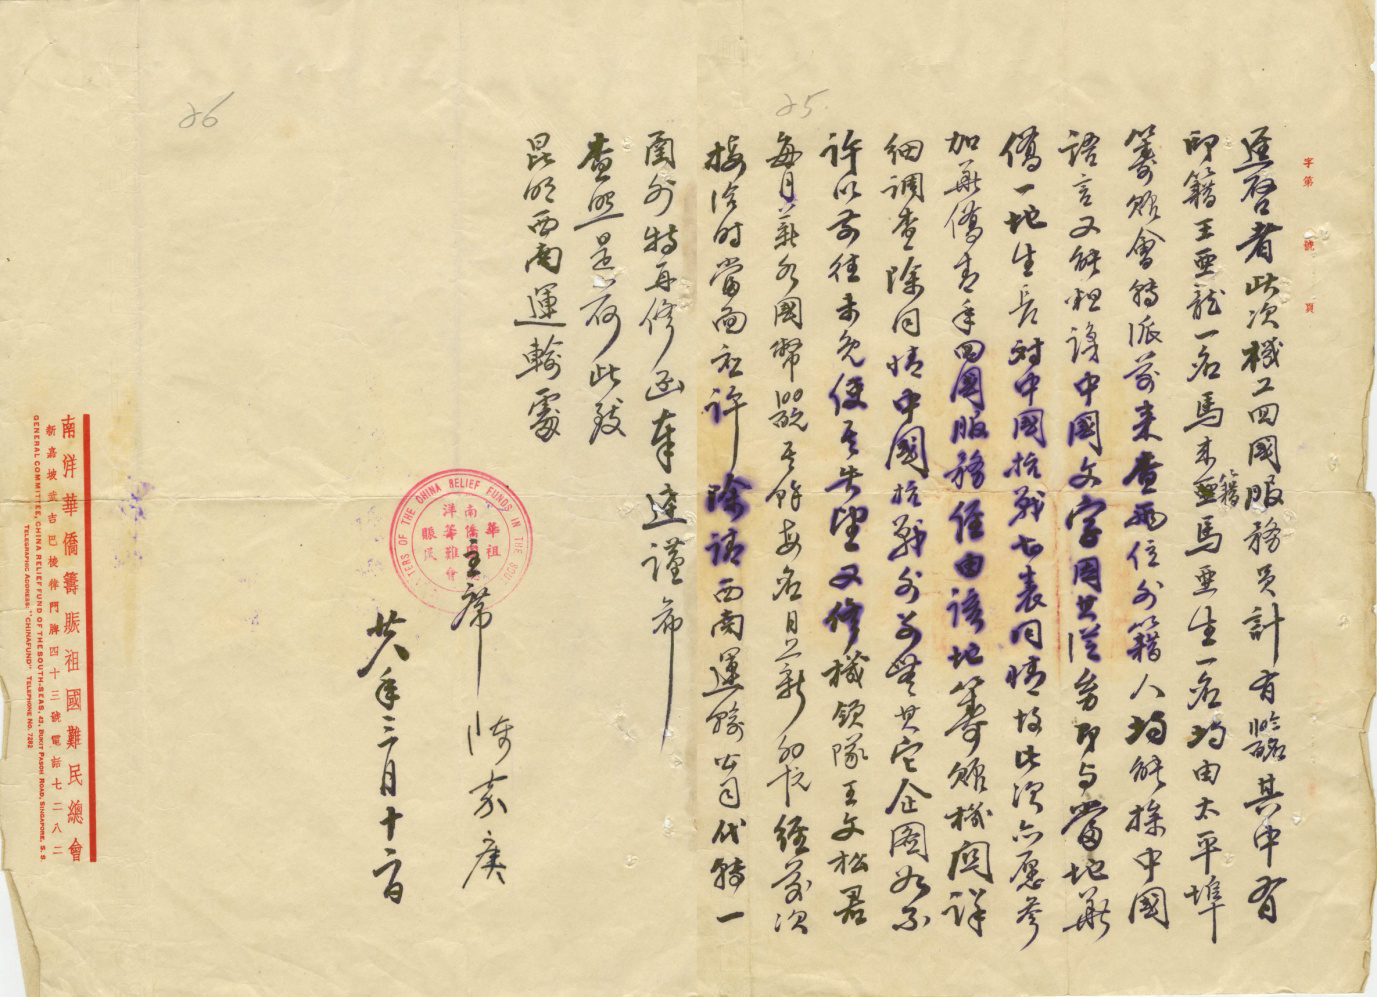 字第 號 頁
25
逕啓者此次機工回國服務員計有 其中有
印籍王亞龍一名馬來籍馬亞生一名均由太平埠
籌賑會轉派前來查兩位外籍人均能操中國
語言又能粗識中國文字因其從幼即与當地華
僑一地生長對中國抗戰尤表同情故此次亦愿參
加華僑青年回國服務經由該地籌賑機関詳
細調查除同情中國抗戰外並無其它企圖如不
許以前往未免使其失望又修機領隊王文松君
每月薪水國幣 其餘每名月薪 經前次
接洽時當面允許除請西南運輸公司代轉一
函外特再修函奉達謹希
查照是荷此致
昆明西南運輸處
主席 陳嘉庚
廿八年三月十二日
26
南洋華僑籌賑祖國難民總會
新嘉坡武吉巴梭律門牌四十三號電話七二八二
GENERAL COMMITTEE, CHINA RELIEF FUND OF THE SOUTH-SEAS, 43, BUKIT PASOH ROAD, SINGAPORE, S. S.
TELEGRAPHIC ADDRESS: "CHINAFUND" TELEPHONE NO. 7282
OF THE CHINA RELIEF FUNDS IN THE